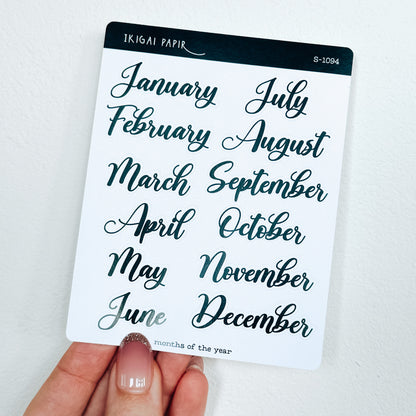 IKIGAI PAPIR
S-1094
January
February
March
April
May
June
July
August
September
October
November
December
months of the year